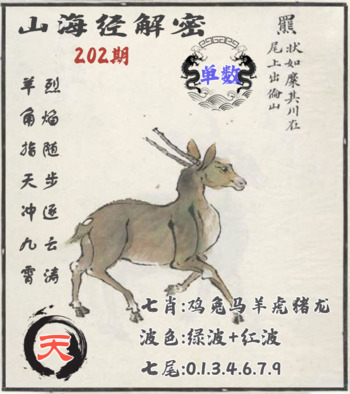 山海经解密
202期
单数
羆
状如麋其川在
尾上出倫山
羊角指天冲九霄
烈焰随步逐云涛
天
七肖:鸡兔马羊虎猪龙
波色:绿波+红波
七尾:0.1.3.4.6.7.9